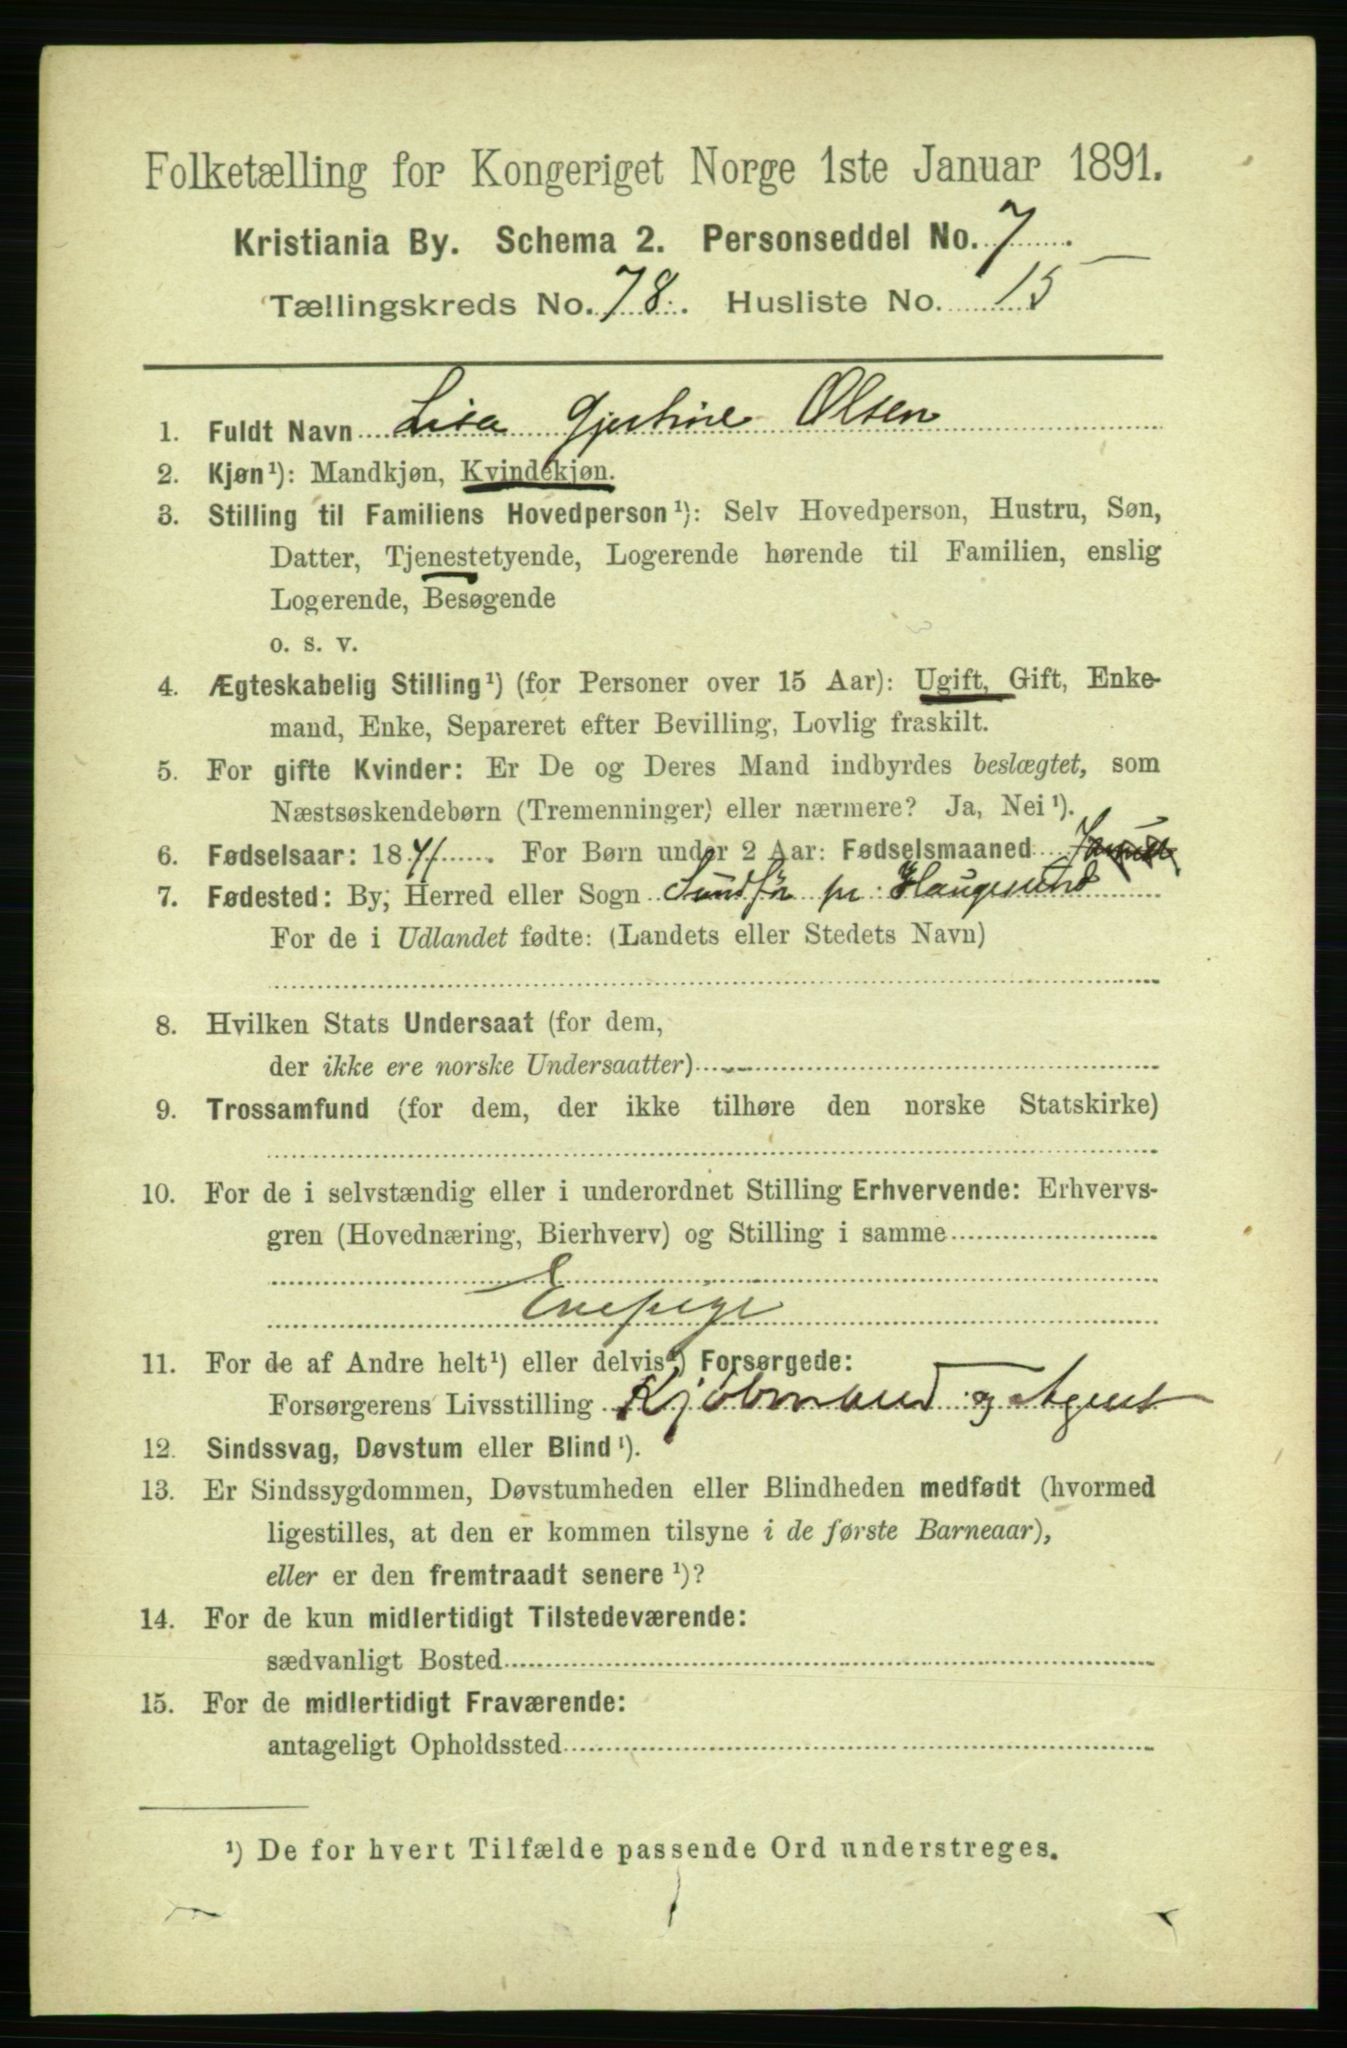 Folketælling for Kongeriget Norge 1ste Januar 1891.
Kristiania By. Schema 2. Personseddel No. 7.
Tællingskreds No. 78. Husliste No. 15
1. Fuldt Navn Lisa Gjertine Olsen
2. Kjøn¹): Mandkjøn, Kvindekjøn.
3. Stilling til Familiens Hovedperson¹): Selv Hovedperson, Hustru, Søn,
Datter, Tjenestetyende, Logerende hørende til Familien, enslig
Logerende, Besøgende
o. s. v.
4. Ægteskabelig Stilling¹) (for Personer over 15 Aar): Ugift, Gift, Enke-
mand, Enke, Separeret efter Bevilling, Lovlig fraskilt.
5. For gifte Kvinder: Er De og Deres Mand indbyrdes beslægtet, som
Næstsøskendebørn (Tremenninger) eller nærmere? Ja, Nei¹).
6. Fødselsaar: 1871. For Børn under 2 Aar: Fødselsmaaned
7. Fødested: By; Herred eller Sogn Sundfør pr Haugesund
For de i Udlandet fødte: (Landets eller Stedets Navn)
8. Hvilken Stats Undersaat (for dem,
der ikke ere norske Undersaatter)
9. Trossamfund (for dem, der ikke tilhøre den norske Statskirke)
10. For de i selvstændig eller i underordnet Stilling Erhvervende: Erhvervs-
gren (Hovednæring, Bierhverv) og Stilling i samme
Enepige
11. For de af Andre helt¹) eller delvis¹) Forsørgede:
Forsørgerens Livsstilling Kjøbmand og Agent
12. Sindssvag, Døvstum eller Blind¹).
13. Er Sindssygdommen, Døvstumheden eller Blindheden medfødt (hvormed
ligestilles, at den er kommen tilsyne i de første Barneaar),
eller er den fremtraadt senere¹)?
14. For de kun midlertidigt Tilstedeværende:
sædvanligt Bosted
15. For de midlertidigt Fraværende:
antageligt Opholdssted
¹) De for hvert Tilfælde passende Ord understreges.